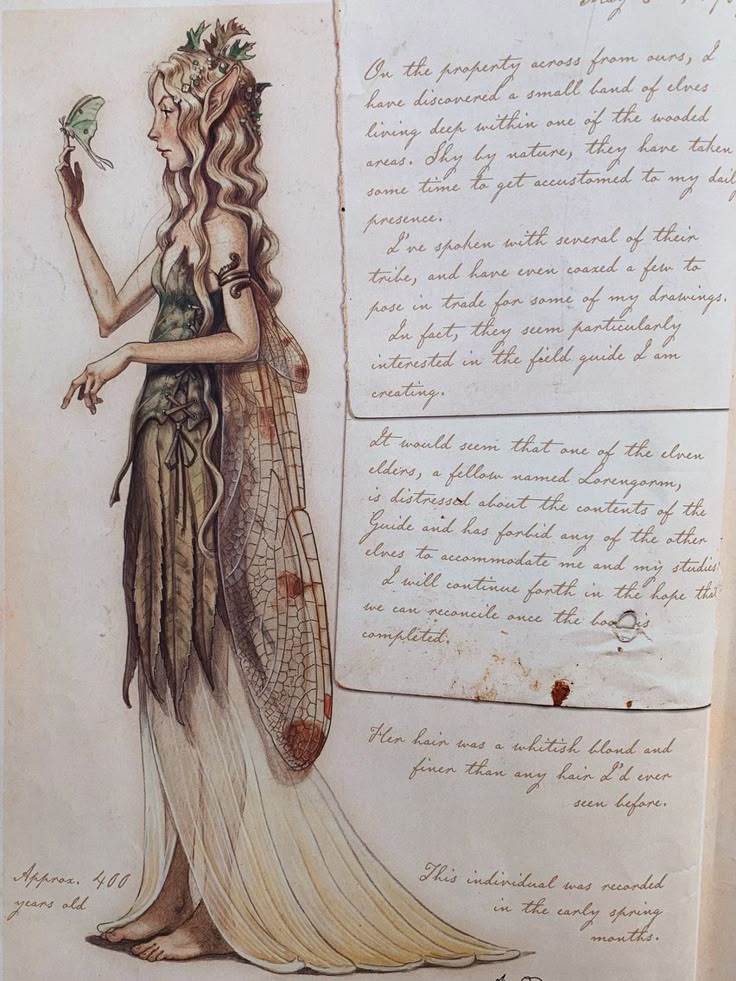 On the property across from ours, I
have discovered a small band of elves
living deep within one of the wooded
areas. Shy by nature, they have taken
some time to get accustomed to my daily
presence.
I've spoken with several of their
tribe, and have even coaxed a few to
pose in trade for some of my drawings.
In fact, they seem particularly
interested in the field guide I am
creating.
It would seem that one of the elven
elders, a fellow named Lorengorm,
is distressed about the contents of the
Guide and has forbid any of the other
elves to accommodate me and my studies.
I will continue forth in the hope that
we can reconcile once the book is
completed.
Her hair was a whitish blond and
finer than any hair I'd ever
seen before.
Approx. 400
years old
This individual was recorded
in the early spring
months.